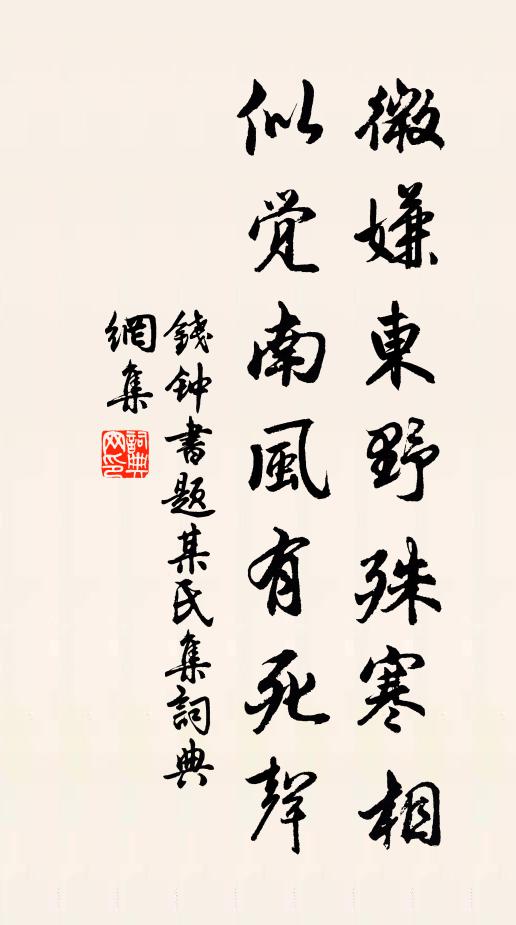 微嫌東野殊寒相
似覚南風有死聲
錢钟書題某氏集詞典
網集
詞典
网印